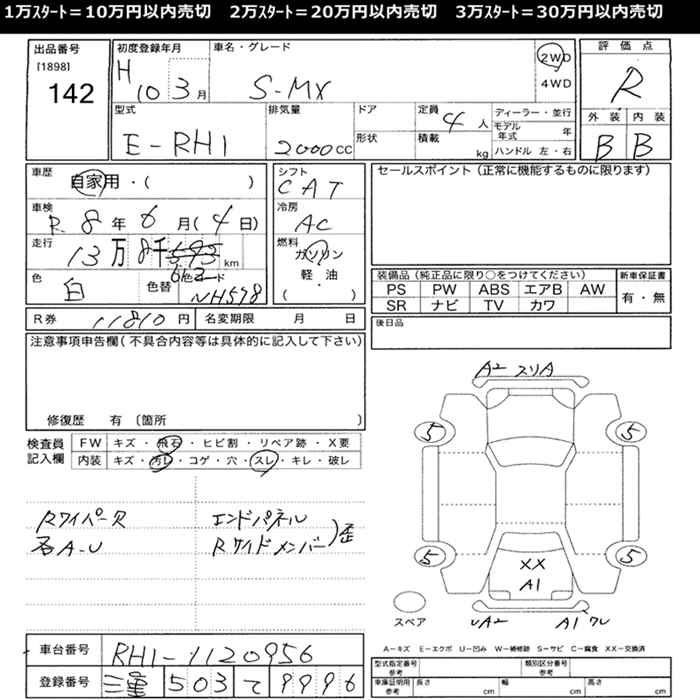 1万スタート＝10万円以内売切 2万スタート＝20万円以内売切 3万スタート＝30万円以内売切
出品番号
[1898]
142
初度登録年月
H 10 3月
車名・グレード
S-MX
2WD
4WD
評価点
R
型式
E-RH1
排気量
2000cc
ドア
形状
定員
4人
積載
kg
ディーラー・並行
モデル年式 年
ハンドル 左・右
外装 内装
B B
車歴
自家用・( )
車検
R 8年6月(4日)
走行
13万8千593km
612
色
白
色替
色コード
NH578
シフト
CAT
冷房
AC
燃料
ガソリン
軽・油
( )
セールスポイント（正常に機能するものに限ります）
装備品（純正品に限り○をつけてください）
PS PW ABS エアB AW
SR ナビ TV カワ
新車保証書
有・無
R券 11810円
名変期限 月 日
後日品
注意事項申告欄（不具合内容等は具体的に記入して下さい）
修復歴 有 〔箇所 〕
検査員
記入欄
FW キズ・飛石・ヒビ割・リペア跡・X要
内装 キズ・汚レ・コゲ・穴・スレ・キレ・破レ
Rワイパー欠
各A-U
エンドパネル
Rサイドメンバー
)歪
A2 スリA
5 5
5 5
XX
A1
スペア
UA2 A1ワレ
A-キズ E-エクボ U-凹み W-補修跡 S-サビ C-腐食 XX-交換済
車台番号 RH1-1120956
登録番号 三重 503 て 9996
型式指定番号
参考
類別区分番号
参考
車庫証明用
参考
長さ cm 幅 cm 高さ cm